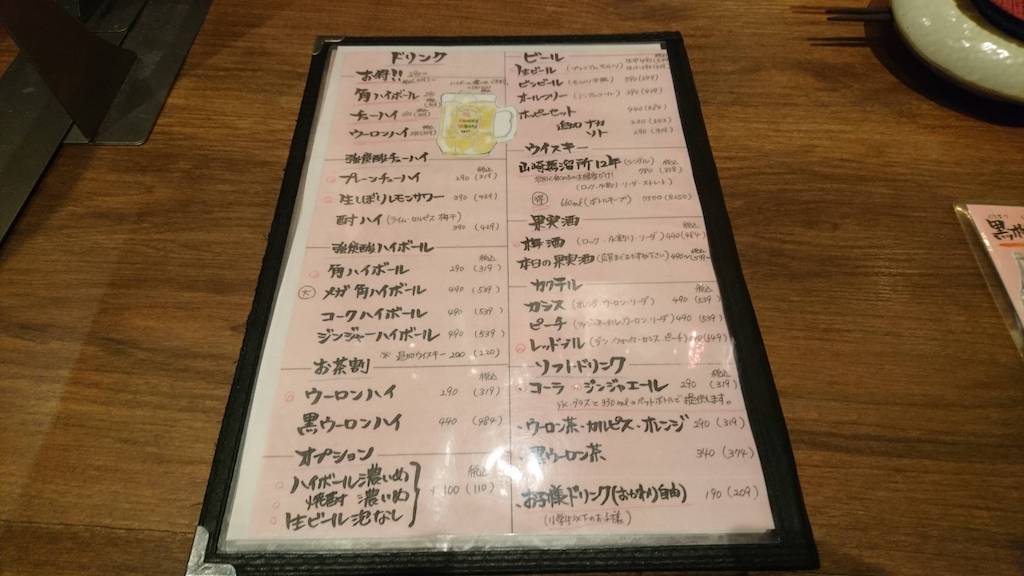 ドリンク
お得!!
角ハイボール
チューハイ
ウーロンハイ
強炭酸チューハイ
税込
プレーンチューハイ 290 (319)
生しぼりレモンサワー 390 (429)
酎ハイ (ライム・カルピス 梅干)
390 (429)
強炭酸ハイボール
税込
角ハイボール 290 (319)
メガ角ハイボール 490 (539)
コークハイボール 490 (539)
ジンジャーハイボール 490 (539)
※ 追加ウイスキー 200 (220)
お茶割
税込
ウーロンハイ 290 (319)
黒ウーロンハイ 440 (484)
オプション
税込
ハイボール濃いめ
焼酎 濃いめ
生ビール泡なし
+100 (110)
ビール
税込
生ビール
ビンビール 590 (649)
オールフリー 390 (429)
ホッピーセット 440 (484)
追加 ナカ
ソト
ウイスキー
山崎蒸溜所12年 (シングル) 税込
780 (858)
(ロック・水割り・ソーダ・ストレート)
660ml (ボトルキープ)
果実酒
税込
梅酒 (ロック・水割り・ソーダ) 440 (484)
本日の果実酒
カクテル
税込
カシス (オレンジ・ウーロン・ソーダ) 490 (539)
ピーチ 490 (539)
レッドブル
ソフトドリンク
税込
コーラ・ジンジャエール 290 (319)
氷・グラスと350mlのペットボトルで提供します。
ウーロン茶・カルピス・オレンジ 290 (319)
黒ウーロン茶 340 (374)
お子様ドリンク(おかわり自由) 190 (209)
(小学生以下のお子様)